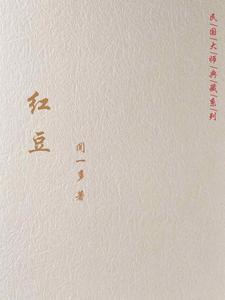 民国大师典藏系列
红豆
闻一多著